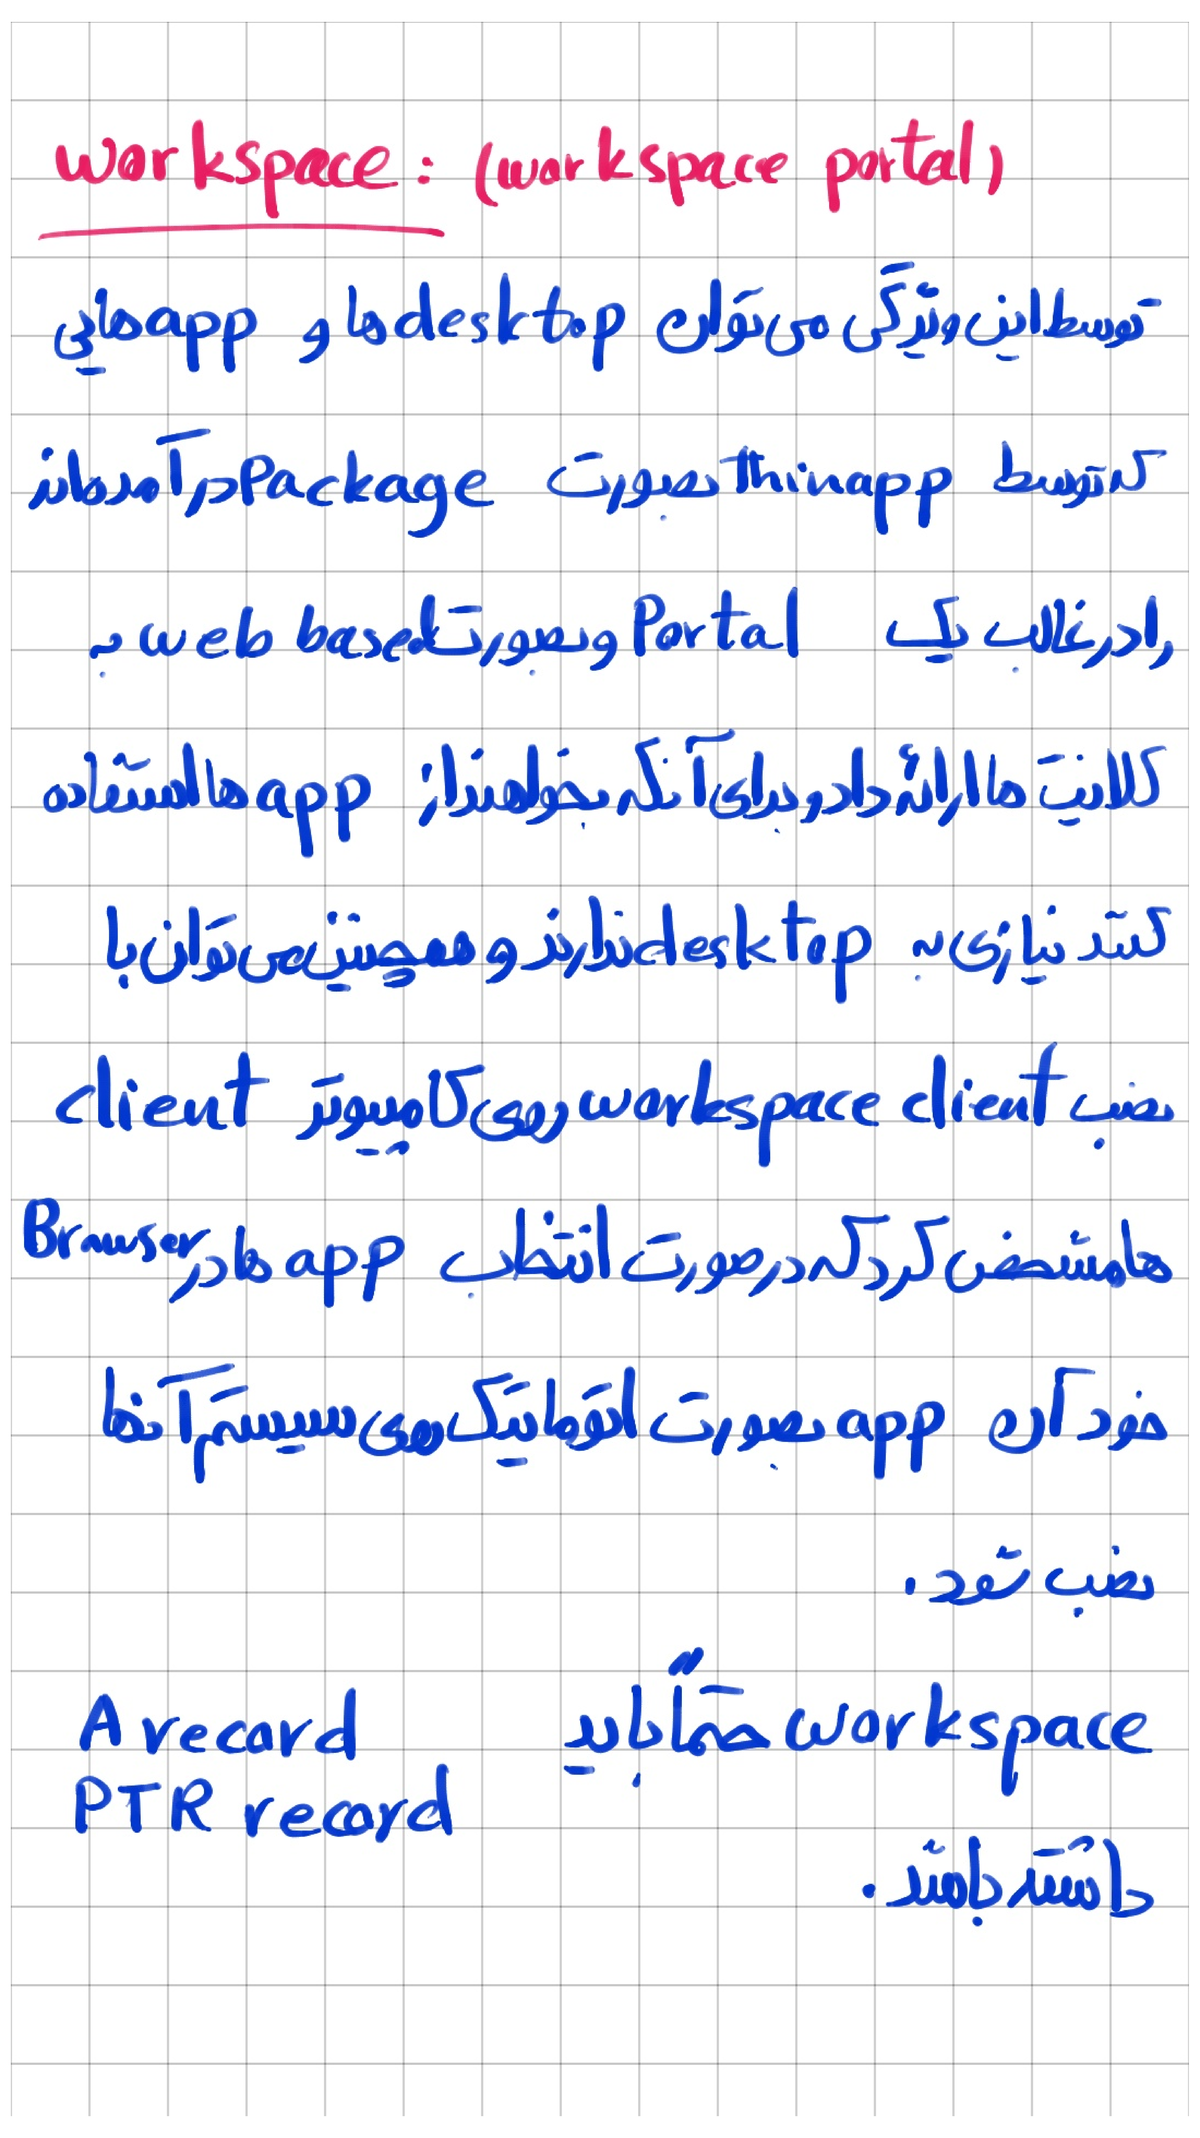 workspace: (workspace portal)
توسط این ویژگی می توان desktop ها و app هایی
که توسط Thinapp بصورت Package در آمده اند
را در غالب یک Portal و بصورت web based به
کلاینت ها ارائه داد و برای آنکه بخواهند از app ها استفاده
کنند نیازی به desktop ندارند و همچنین می توان با
نصب workspace client روی کامپیوتر client
ها مشخص کرد که در صورت انتخاب app ها در Browser
خود آن app بصورت اتوماتیک روی سیستم آنها
نصب شود.
workspace حتماً باید A record
PTR record
داشته باشد.